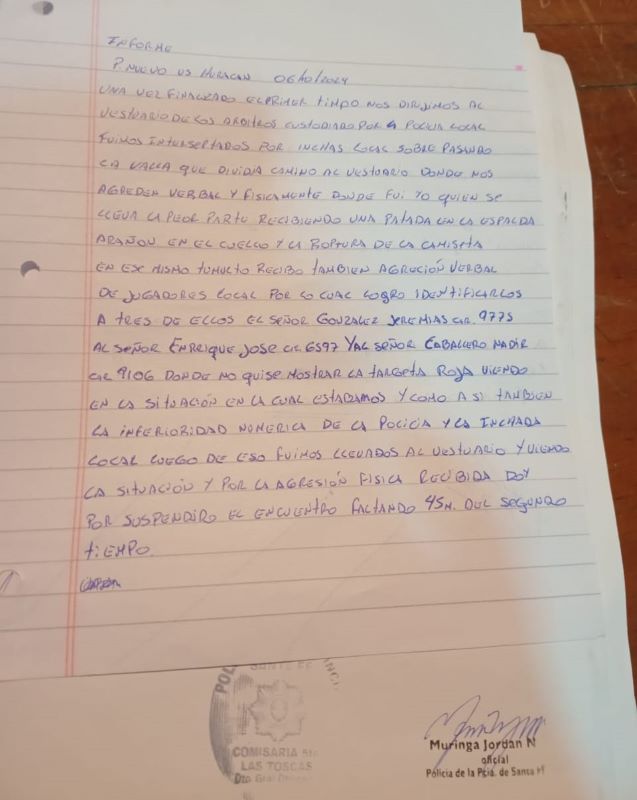 INFORME
P. NUEVO VS HURACAN 06/10/2024
UNA VEZ FINALIZADO EL PRIMER TIMPO NOS DIRIJIMOS AL
VESTUARIO DE LOS ARBITROS CUSTODIADO POR 4 POLICIA LOCAL
FUIMOS INTERSERTADOS POR INCHAS LOCAL SOBRE PASANDO
LA VALLA QUE DIVIDIA CAMINO AL VESTUARIO DONDE NOS
AGREDEN VERBAL Y FISICAMENTE DONDE FUI YO QUIEN SE
LLEVA LA PEOR PARTE RECIBIENDO UNA PATADA EN LA ESPALDA
ARAÑON EN EL CUELLO Y LA ROPTURA DE LA CAMISETA
EN ESE MISMO TUMULTO RECIBO TAMBIEN AGRECIÓN VERBAL
DE JUGADORES LOCAL POR LO CUAL LOGRO IDENTIFICARLOS
A TRES DE ELLOS EL SEÑOR GONZALEZ JEREMIAS CIR. 9775
AL SEÑOR ENRIQUE JOSE CIR 6597 Y AL SEÑOR CABALLERO NADIR
CIR 9106 DONDE NO QUISE MOSTRAR LA TARGETA ROJA VIENDO
EN LA SITUACIÓN EN LA CUAL ESTABAMOS Y COMO A SI TAMBIEN
LA INFERIORIDAD NUMERICA DE LA POLICIA Y LA INCHADA
LOCAL LUEGO DE ESO FUIMOS LLEVADOS AL VESTUARIO Y VIENDO
LA SITUACIÓN Y POR LA AGRESIÓN FISICA RECIBIDA DOY
POR SUSPENDIRO EL ENCUENTRO FALTANDO 45M. DEL SEGUNDO
TIEMPO.
COMISARIA
LAS TOSCAS
Dto. Gral
Muringa Jordan N
oficial
Policia de la Pcia. de Santa